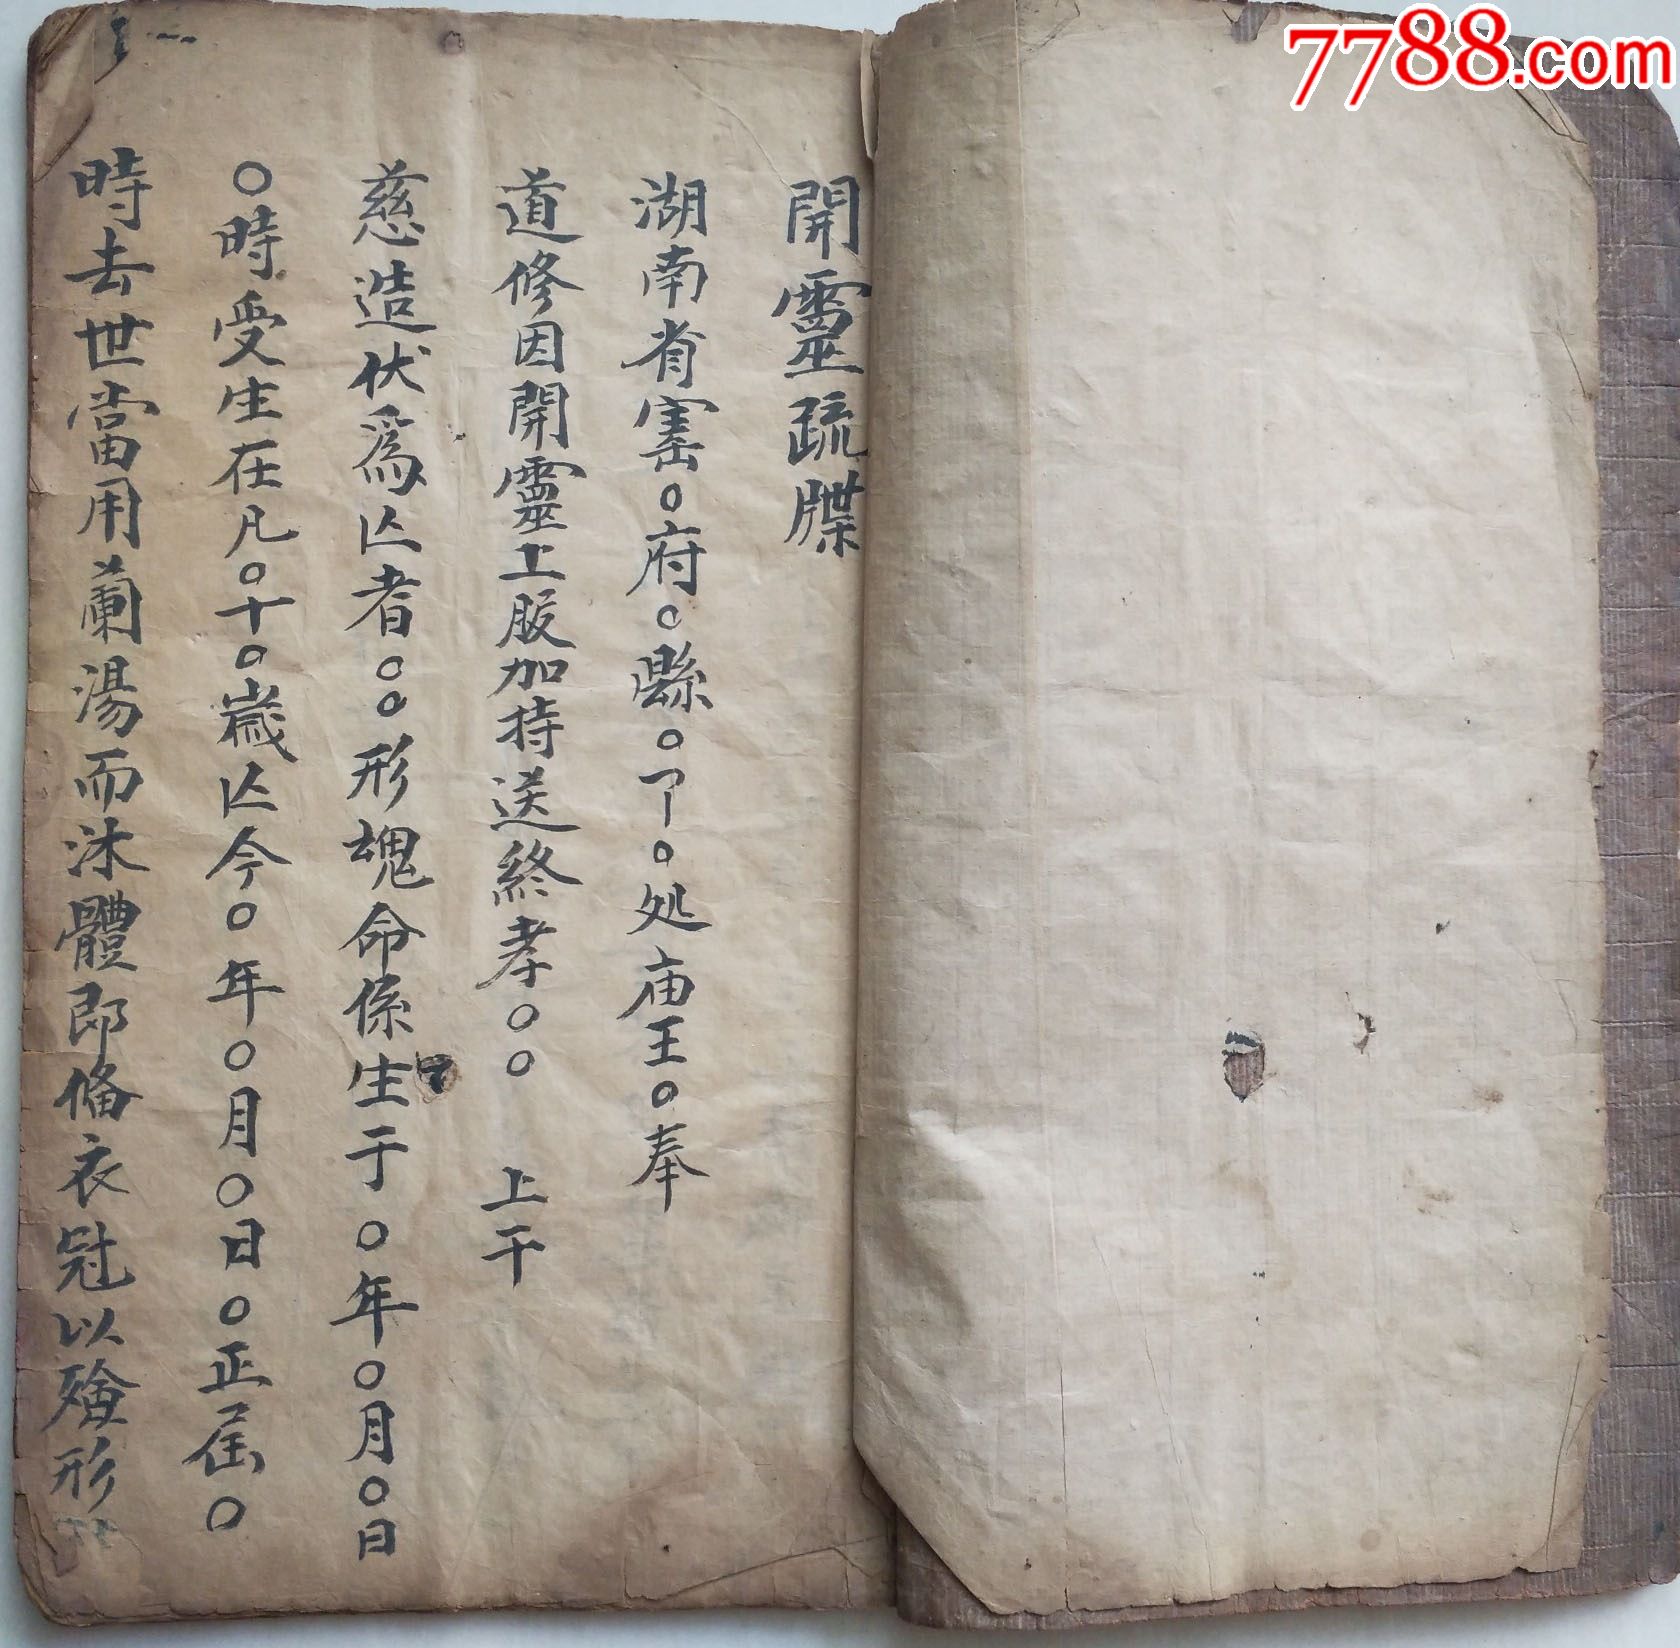 7788.com
開靈疏牒
湖南省寳〇府〇縣〇〇处庙王〇奉
道修因開靈上服加持送終孝〇〇 上干
慈造伏爲亾者〇〇形魂命係生于〇年〇月〇日
〇時受生在凡〇十〇歲亾今〇年〇月〇日〇正届〇
時去世當用蘭湯而沐體即備衣冠以殮形